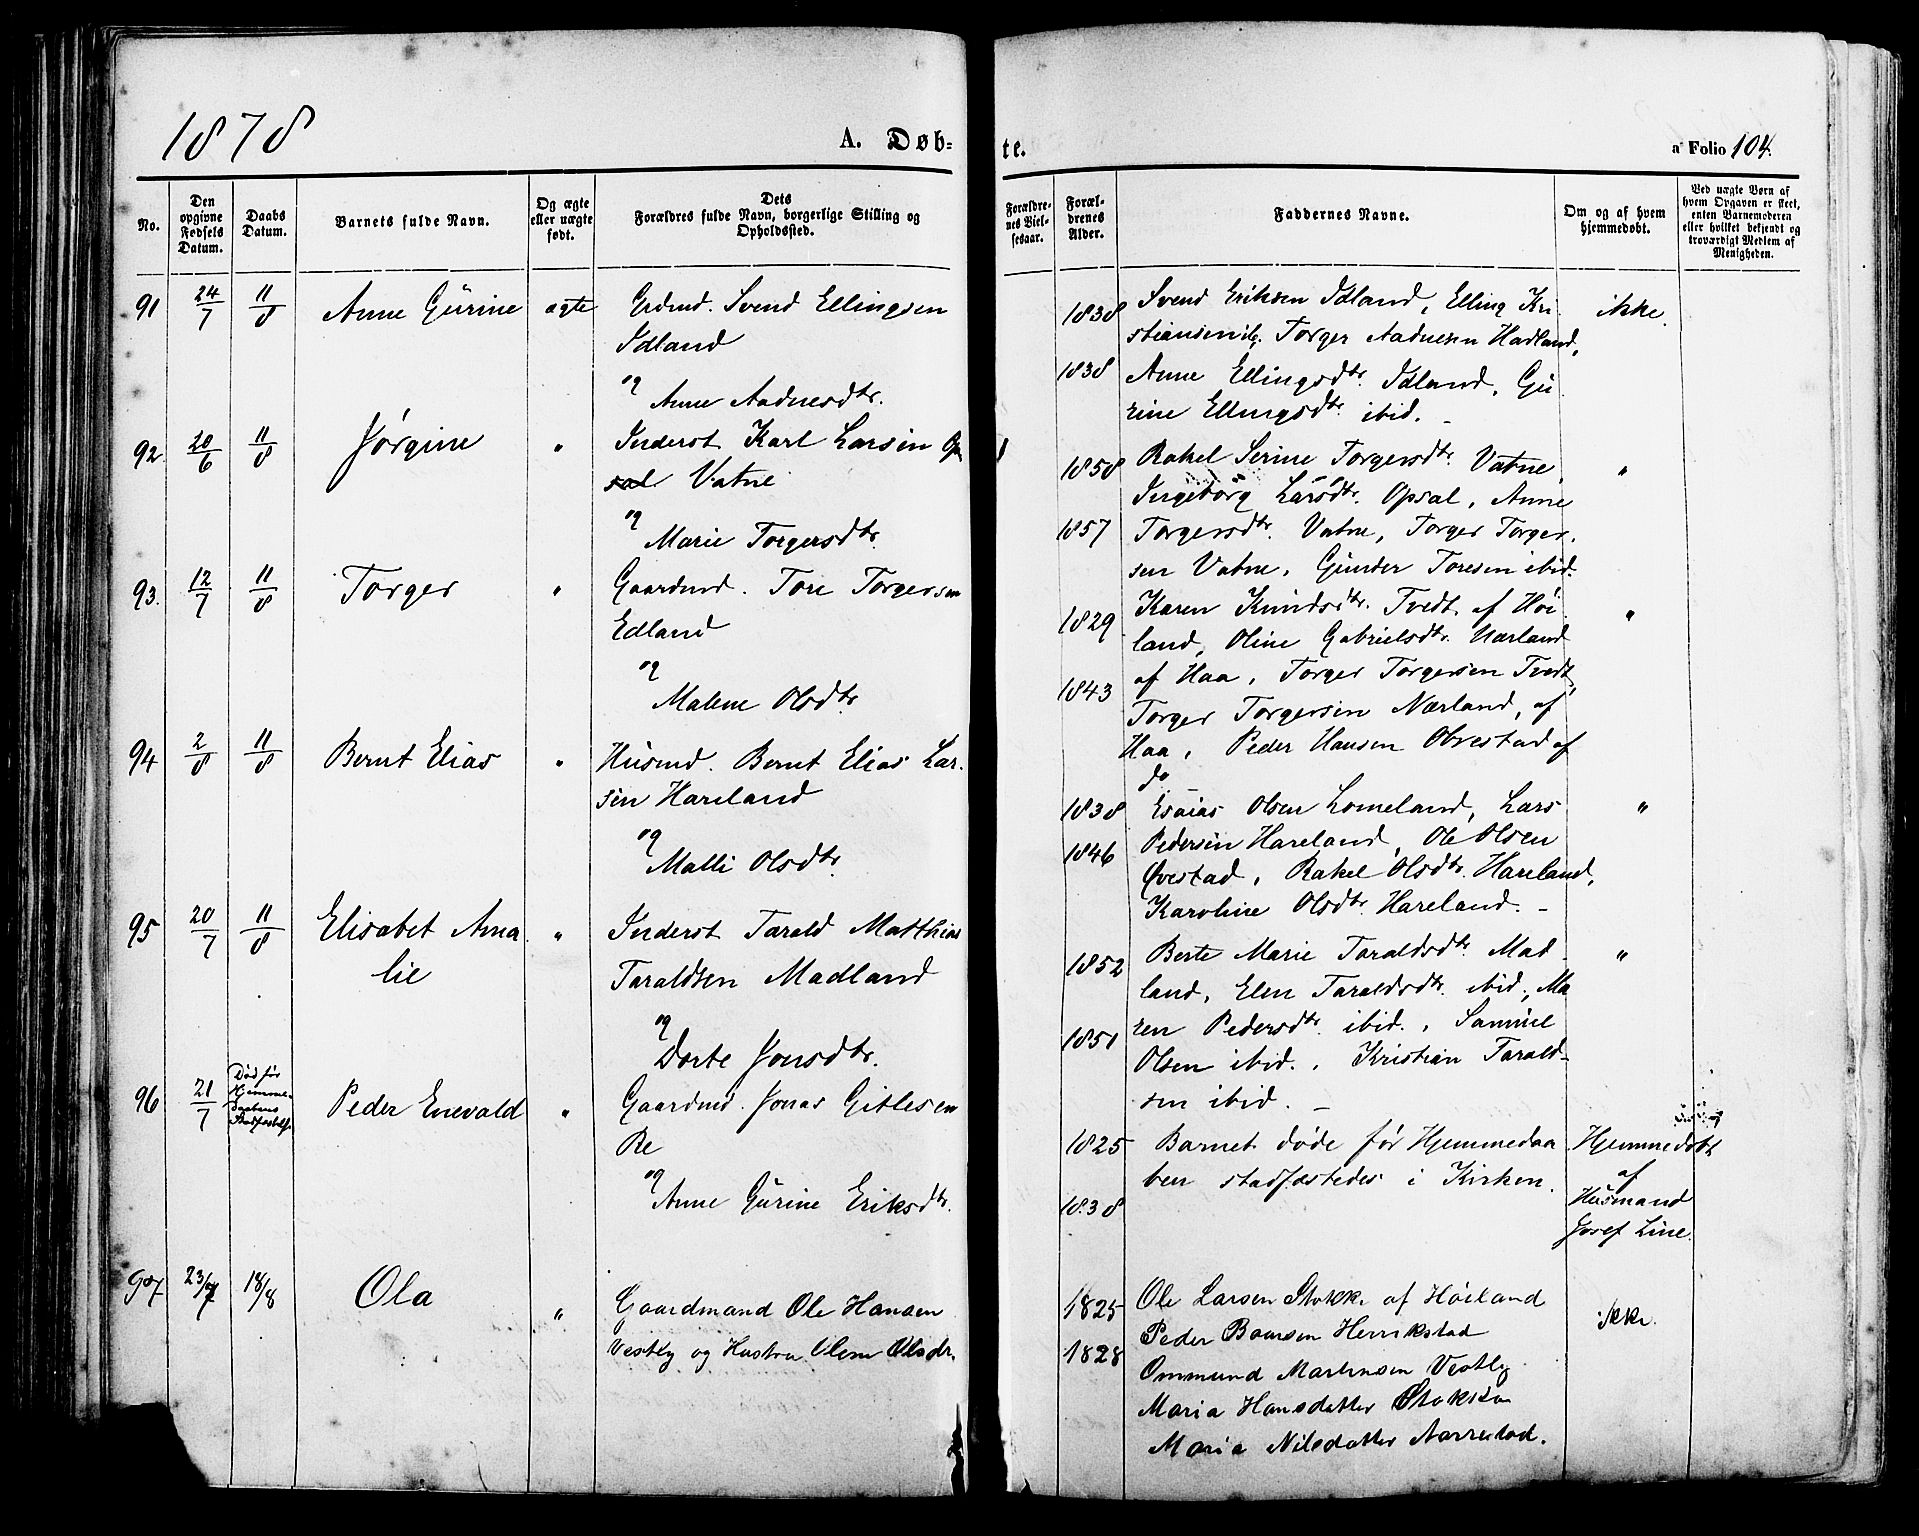 1878
A. Døb-
te.
a Folio 104.
No.
Den
opgivne
Fødsels
Datum.
Daabs
Datum.
Barnets fulde Navn.
Og ægte
eller uægte
født.
Dets
Forældres fulde Navn, borgerlige Stilling og
Opholdssted.
Forældre-
nes Viel-
sesaar.
Foræl-
drenes
Alder.
Faddernes Navne.
Om og af hvem
hjemmedøbt.
Ved uægte Børn af
hvem Opgaven er skeet,
enten Barnemoderen
eller hvilket bekjendt og
troværdigt Medlem af
Menigheden.
91 24/7 11/8 Anne Gurine ægte Grdmd. Svend Ellingsen
Idland
og
Anne Aadnesdtr.
1838 Svend Eriksen Idland, Elling Kri
stiansen ib., Torger Aadnesen Hadland,
1838 Anne Ellingsdtr. Idland, Gu
rine Ellingsdtr. ibid. -
ikke.
92 20/6 11/8 Jørgine " Inderst Karl Larsen Op
sal Vatne
og
Marie Torgersdtr.
1858 Rakel Serine Torgersdtr. Vatne,
Ingeborg Larsdtr. Opsal, Anne
1857 Torgersdtr. Vatne, Torger Torger-
sen Vatne, Gunder Toresen ibid.
"
93. 12/7 11/8 Torger " Gaardmd. Tore Torgersen
Edland
og
Malene Olsdtr
1829 Karen Knudsdtr. Tvedt af Høi
land, Oline Gabrielsdtr. Nærland
af Haa, Torger Torgersen Tvedt,
1843 Torger Torgersen Nærland, af
Haa, Peder Hansen Obrestad af
do
"
94 2/8 11/8 Bernt Elias " Husmd. Bernt Elias Lar-
sen Hareland
og
Malli Olsdtr.
1838 Esaias Olsen Lomeland, Lars
1846 Pedersen Hareland, Ole Olsen
Øvestad, Rakel Olsdtr. Hareland,
Karoline Olsdtr. Hareland. -
"
95 20/7 11/8 Elisabet Ama
lie
" Inderst Tarald Matthias
Taraldsen Madland
og
Dorte Jonsdtr.
1852 Berte Marie Taraldsdtr. Mad-
land, Elen Taraldsdtr. ibid., Ma
1851 ren Pedersdtr. ibid., Samuel
Olsen ibid., Kristian Tarald-
sen ibid. -
"
96 21/7 Død før
Hjemme-
daabens
Stadfæstelse
Peder Enevald " Gaardmd. Jonas Gitlesen
Re
og
Anne Gurine Eriksdtr.
1825 Barnet døde før Hjemmedaa
ben stadfæstedes i Kirken.
1838
Hjemmedøbt
af
Husmand
Josef Line.
97. 23/7 18/8 Ola " Gaardmand Ole Hansen
Vestly og Hustru Elene Olsdr.
1825 Ole Larsen Stokke af Høiland
Peder Baarsen Herrikstad
1828 Ommund Martensen Vestly
Maria Hansdatter Stokka
Maria Nilsdatter Aarrestad.
ikke.